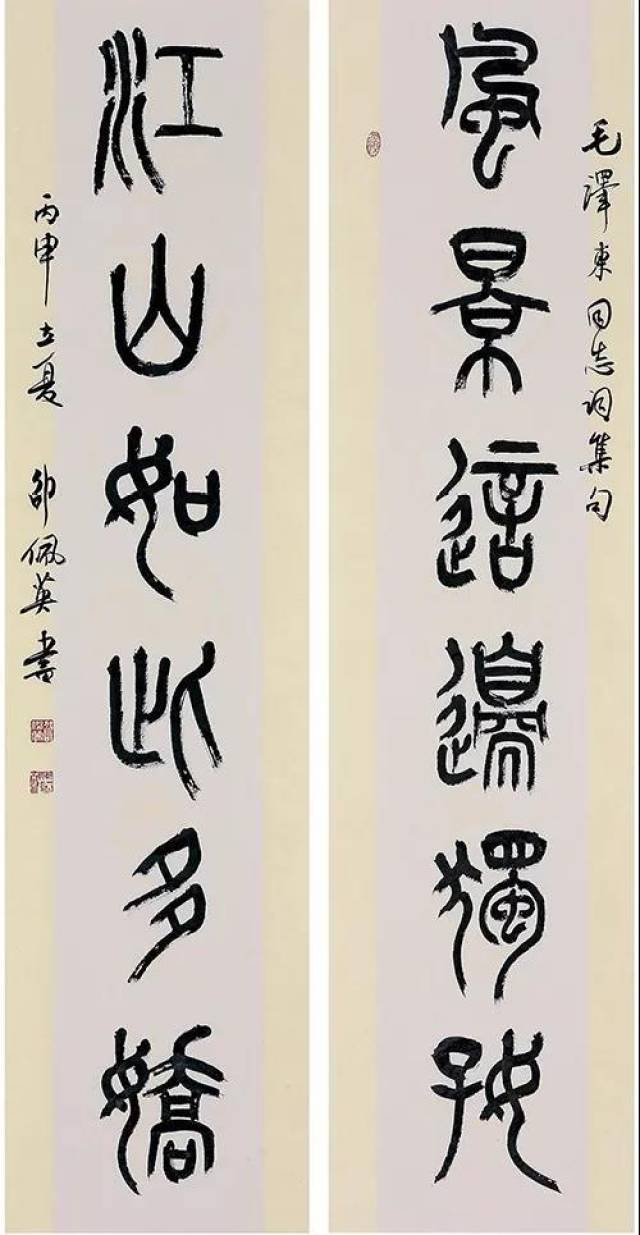 毛澤東同志词集句
風景這邊獨好
江山如此多嬌
丙申立夏 邵佩英書